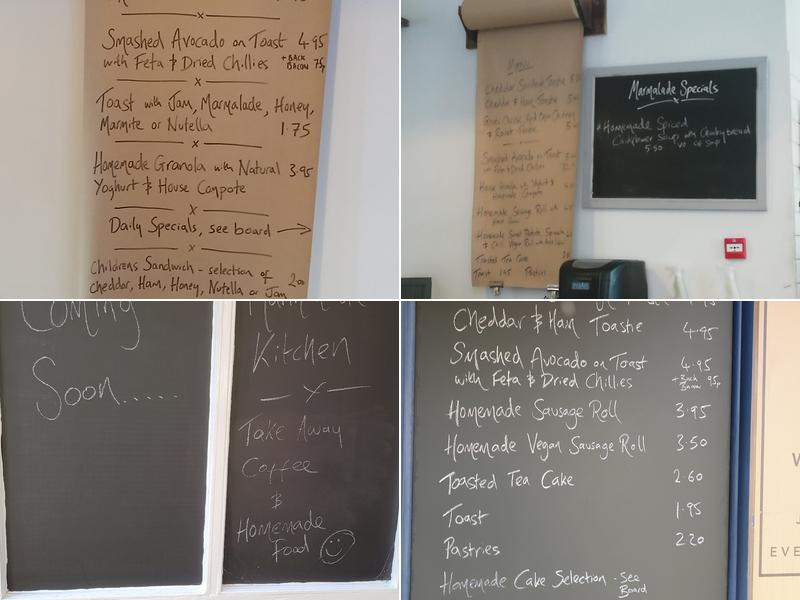 Smashed Avocado on Toast 4.95
with Feta & Dried Chillies +BACK BACON 75p
x
Toast with Jam, Marmalade, Honey,
Marmite or Nutella 1.75
x
Homemade Granola with Natural 3.95
Yoghurt & House Compote
x
Daily Specials, see board →
x
Childrens Sandwich - selection of
Cheddar, Ham, Honey, Nutella or Jam 2.00
Menu
Cheddar Sandwich Toastie
Cheddar & Ham Toastie
& Rocket Toastie
Smashed Avocado on Toast
with Feta & Dried Chillies
House Granola with Yoghurt &
Homemade Compote
Homemade Sausage Roll with
Homemade Sweet Potato, Spinach
& Chilli Vegan Roll with
Toasted Tea Cake
Toast 1.95 Pastries
Marmalade Specials
x
*Homemade Spiced
Cauliflower Soup with Country bread
5.50
Coming
Soon......
Kitchen
x
Take Away
Coffee
&
Homemade
Food
Cheddar & Ham Toastie 4.95
Smashed Avocado on Toast 4.95
with Feta & Dried Chillies +Back Bacon 95p
Homemade Sausage Roll 3.95
Homemade Vegan Sausage Roll 3.50
Toasted Tea Cake 2.60
Toast 1.95
Pastries 2.20
Homemade Cake Selection - See Board
W
J
EVE